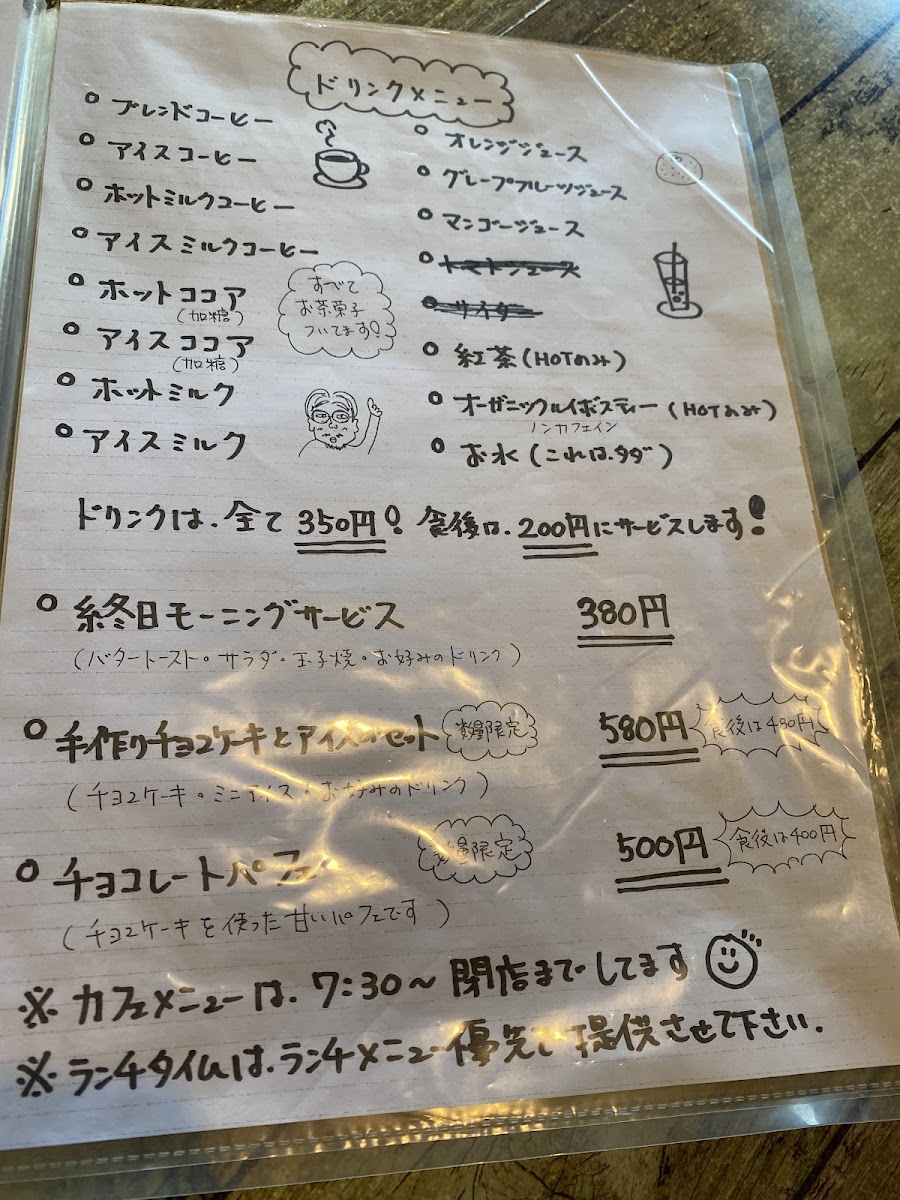 ドリンクメニュー
ブレンドコーヒー
アイスコーヒー
ホットミルクコーヒー
アイスミルクコーヒー
ホットココア
(加糖)
アイスココア
(加糖)
ホットミルク
アイスミルク
すべて
お茶菓子
ついてます!
オレンジジュース
グレープフルーツジュース
マンゴージュース
トマトジュース
サイダー
紅茶(HOTのみ)
オーガニックルイボスティー(HOTのみ)
ノンカフェイン
お水(これは、タダ)
ドリンクは、全て350円! 食後は、200円にサービスします!
終日モーニングサービス 380円
(バタートースト・サラダ・玉子焼・お好みのドリンク)
手作りチョコケーキとアイスのセット 数量限定 580円 食後は480円
(チョコケーキ・ミニアイス・お好みのドリンク)
チョコレートパフェ 数量限定 500円 食後は400円
(チョコケーキを使った甘いパフェです)
※ カフェメニューは、7:30~閉店までしてます
※ ランチタイムは、ランチメニュー優先で提供させて下さい.